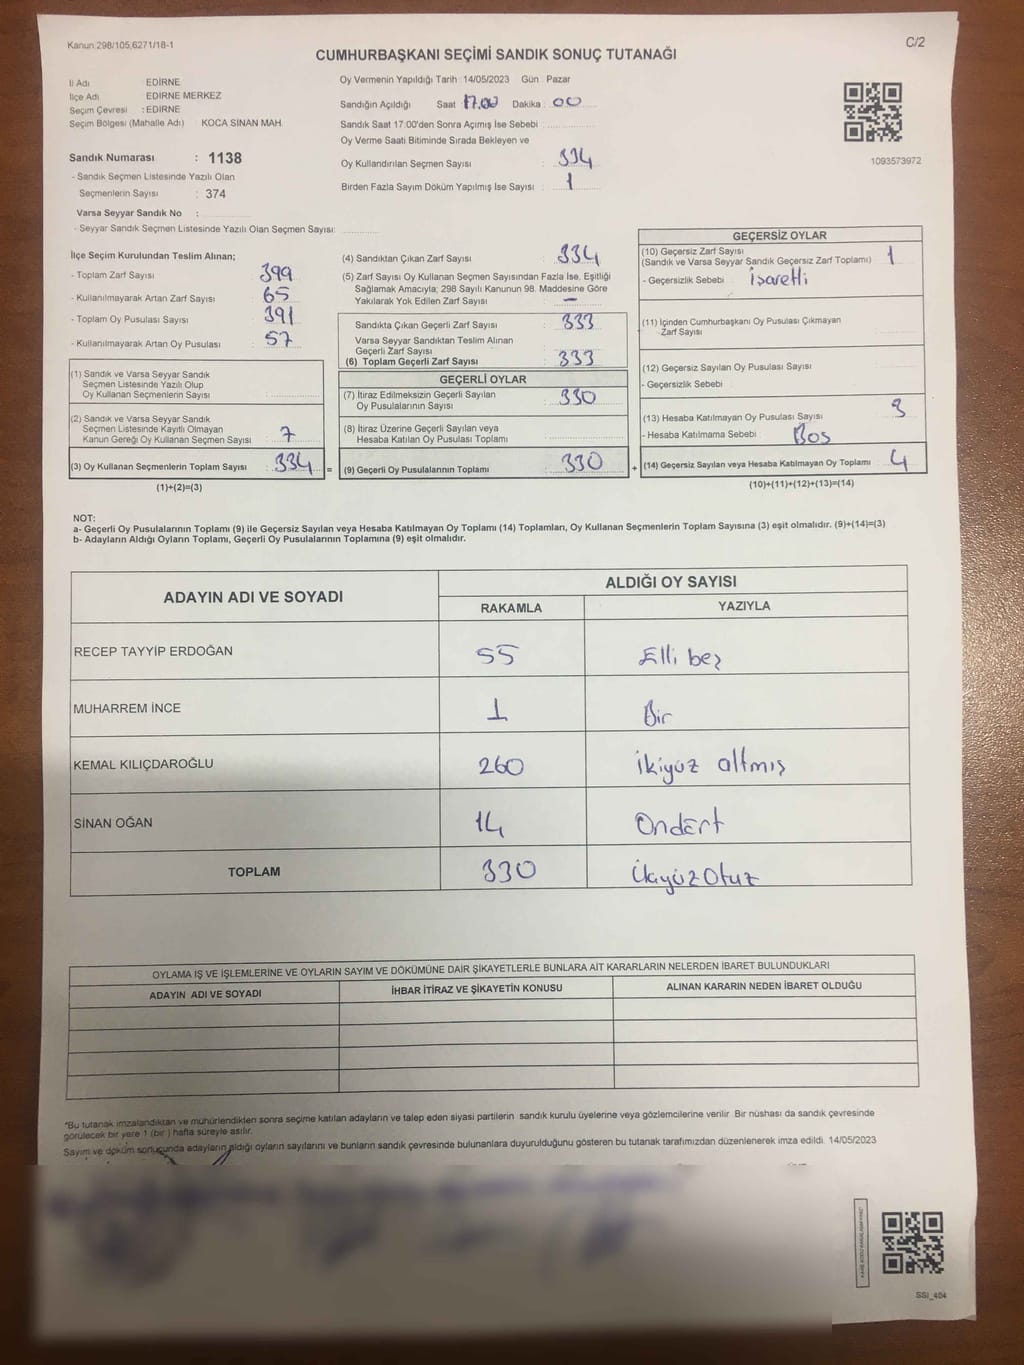 Kanun 298/105,6271/18-1
C/2
CUMHURBAŞKANI SEÇİMİ SANDIK SONUÇ TUTANAĞI
İl Adı EDİRNE
İlçe Adı EDIRNE MERKEZ
Seçim Çevresi : EDIRNE
Seçim Bölgesi (Mahalle Adı) KOCA SINAN MAH.
Oy Vermenin Yapıldığı Tarih : 14/05/2023 Gün : Pazar
Sandığın Açıldığı Saat 17.00 Dakika : 00
Sandık Saat 17:00'den Sonra Açımış İse Sebebi
Oy Verme Saati Bitiminde Sırada Bekleyen ve
Oy Kullandırılan Seçmen Sayısı : 334
Birden Fazla Sayım Döküm Yapılmış İse Sayısı : 1
1093573972
Sandık Numarası : 1138
- Sandık Seçmen Listesinde Yazılı Olan
Seçmenlerin Sayısı : 374
Varsa Seyyar Sandık No :
- Seyyar Sandık Seçmen Listesinde Yazılı Olan Seçmen Sayısı:
İlçe Seçim Kurulundan Teslim Alınan;
- Toplam Zarf Sayısı : 399
- Kullanılmayarak Artan Zarf Sayısı : 65
- Toplam Oy Pusulası Sayısı : 391
- Kullanılmayarak Artan Oy Pusulası : 57
(1) Sandık ve Varsa Seyyar Sandık
Seçmen Listesinde Yazılı Olup
Oy Kullanan Seçmenlerin Sayısı :
(2) Sandık ve Varsa Seyyar Sandık
Seçmen Listesinde Kayıtlı Olmayan
Kanun Gereği Oy Kullanan Seçmen Sayısı : 7
(3) Oy Kullanan Seçmenlerin Toplam Sayısı : 334 =
(1)+(2)=(3)
(4) Sandıktan Çıkan Zarf Sayısı : 334
(5) Zarf Sayısı Oy Kullanan Seçmen Sayısından Fazla İse, Eşitliği
Sağlamak Amacıyla; 298 Sayılı Kanunun 98. Maddesine Göre
Yakılarak Yok Edilen Zarf Sayısı : —
Sandıkta Çıkan Geçerli Zarf Sayısı : 333
Varsa Seyyar Sandıktan Teslim Alınan
Geçerli Zarf Sayısı
(6) Toplam Geçerli Zarf Sayısı : 333
GEÇERLİ OYLAR
(7) İtiraz Edilmeksizin Geçerli Sayılan
Oy Pusulalarının Sayısı : 330
(8) İtiraz Üzerine Geçerli Sayılan veya
Hesaba Katılan Oy Pusulası Toplamı :
(9) Geçerli Oy Pusulalarının Toplamı : 330 +
GEÇERSİZ OYLAR
(10) Geçersiz Zarf Sayısı
(Sandık ve Varsa Seyyar Sandık Geçersiz Zarf Toplamı) : 1
- Geçersizlik Sebebi : İşaretli
(11) İçinden Cumhurbaşkanı Oy Pusulası Çıkmayan
Zarf Sayısı :
(12) Geçersiz Sayılan Oy Pusulası Sayısı :
- Geçersizlik Sebebi :
(13) Hesaba Katılmayan Oy Pusulası Sayısı : 3
- Hesaba Katılmama Sebebi : Boş
(14) Geçersiz Sayılan veya Hesaba Katılmayan Oy Toplamı : 4
(10)+(11)+(12)+(13)=(14)
NOT:
a- Geçerli Oy Pusulalarının Toplamı (9) ile Geçersiz Sayılan veya Hesaba Katılmayan Oy Toplamı (14) Toplamları, Oy Kullanan Seçmenlerin Toplam Sayısına (3) eşit olmalıdır. (9)+(14)=(3)
b- Adayların Aldığı Oyların Toplamı, Geçerli Oy Pusulalarının Toplamına (9) eşit olmalıdır.
ADAYIN ADI VE SOYADI
ALDIĞI OY SAYISI
RAKAMLA YAZIYLA
RECEP TAYYİP ERDOĞAN 55 Elli beş
MUHARREM İNCE 1 Bir
KEMAL KILIÇDAROĞLU 260 ikiyüz altmış
SİNAN OĞAN 14 Ondört
TOPLAM 330 ÜçyüzOtuz
OYLAMA İŞ VE İŞLEMLERİNE VE OYLARIN SAYIM VE DÖKÜMÜNE DAİR ŞİKAYETLERLE BUNLARA AİT KARARLARIN NELERDEN İBARET BULUNDUKLARI
ADAYIN ADI VE SOYADI İHBAR İTİRAZ VE ŞİKAYETİN KONUSU ALINAN KARARIN NEDEN İBARET OLDUĞU
*Bu tutanak imzalandıktan ve mühürlendikten sonra seçime katılan adayların ve talep eden siyasi partilerin sandık kurulu üyelerine veya gözlemcilerine verilir. Bir nüshası da sandık çevresinde
görülecek bir yere 1 (bir ) hafta süreyle asılır.
Sayım ve döküm sonucunda adayların aldığı oyların sayılarını ve bunların sandık çevresinde bulunanlara duyurulduğunu gösteren bu tutanak tarafımızdan düzenlenerek imza edildi. 14/05/2023
SSI_404